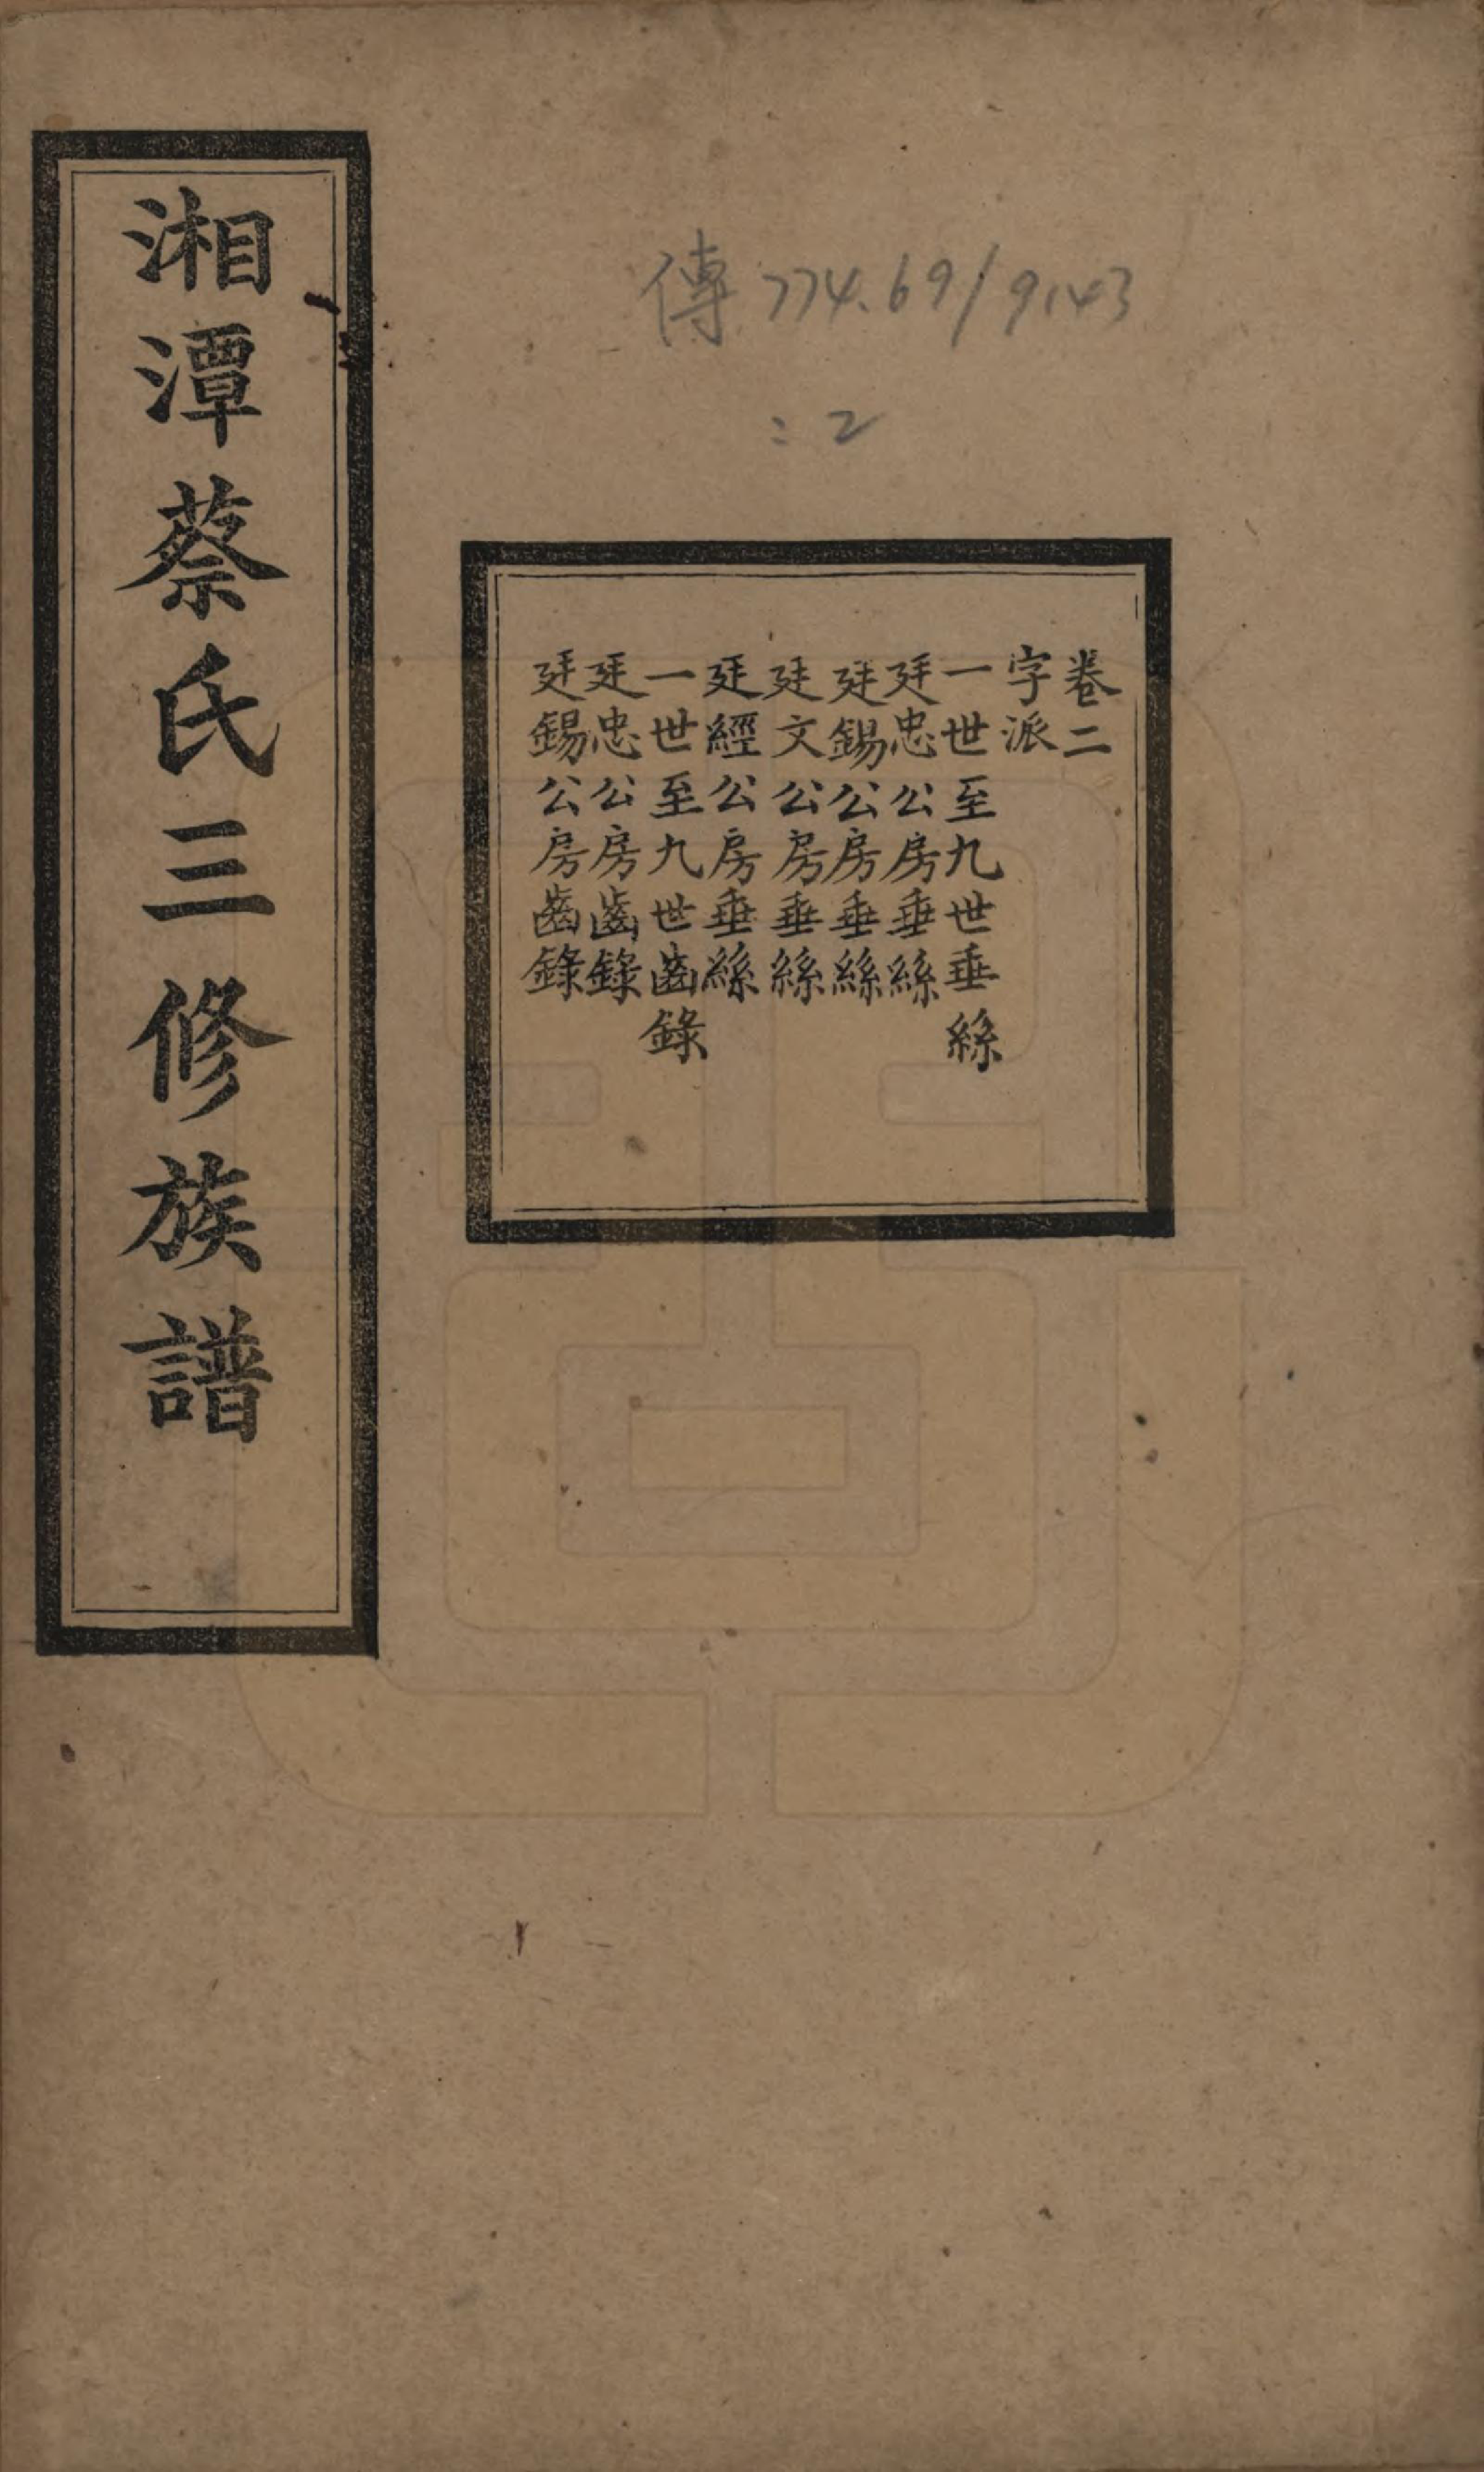 傳 774.69/9143
:2
卷二
字派
一世至九世垂絲
廷忠公房垂絲
廷錫公房垂絲
廷文公房垂絲
廷經公房垂絲
一世至九世齒錄
廷忠公房齒錄
廷錫公房齒錄
湘潭蔡氏三修族譜